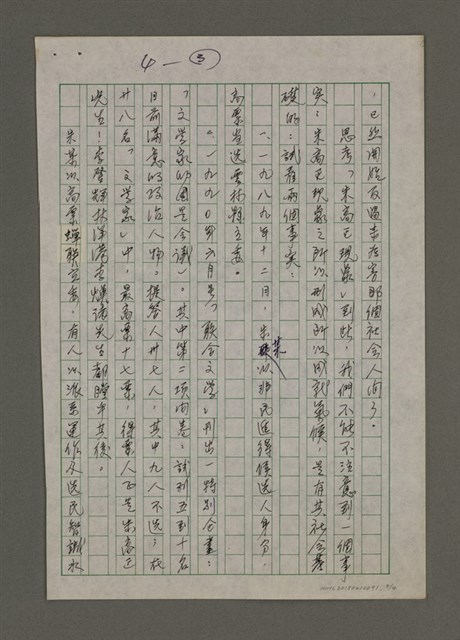 4—③
，已經開啟反過來在害那個社會人們了。
思考「朱高正現象」到此，我們不能不注意到一個事
實：朱高正現象之所以形成所以成就氣候，是有其社會基
礎的：試看兩個事實：
一、一九八九年十二月，朱某以非民進得候選人身分，
高票當選雲林縣立委。
二、一九九〇年六月號「聯合文學」刊出一特別企畫：
「文學家的國是會議」。其中第二項問卷 試列五到十名
目前滿意的政治人物。提答人卅七人，其中九人不選；在
廿八名「文學家」中，最高票十七票，得票人正是朱高正
先生！李登輝林洋港李煥諸先生都瞠乎其後。
朱某以高票蟬聯立委，有人以派系運作及選民智識水